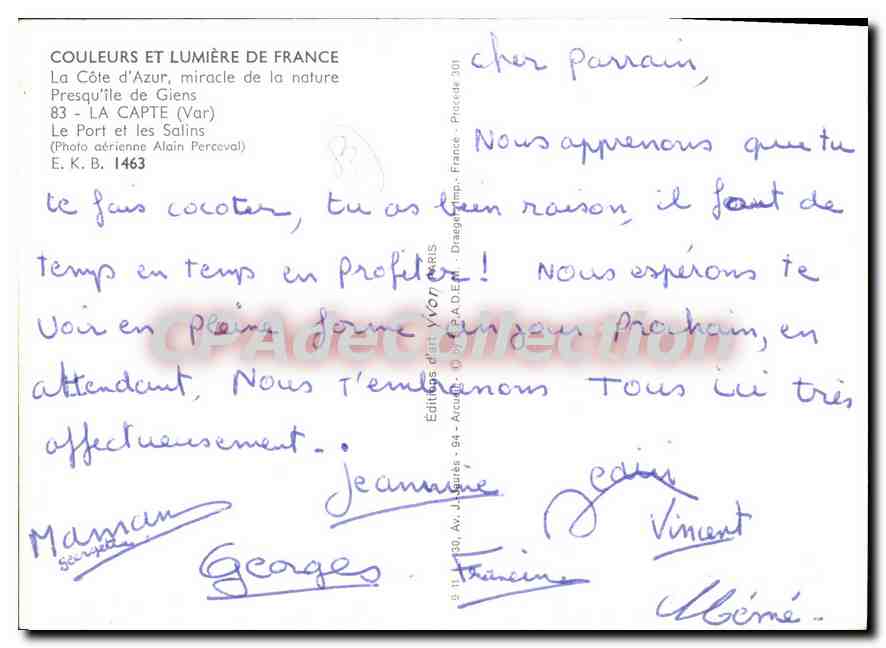 COULEURS ET LUMIÈRE DE FRANCE
La Côte d'Azur, miracle de la nature
Presqu'île de Giens
83 - LA CAPTE (Var)
Le Port et les Salins
(Photo aérienne Alain Perceval)
E. K. B. 1463
Cher parrain,
Nous apprenons que tu
te fais cocoter, tu as bien raison, il faut de
temps en temps en profiter! Nous espérons te
voir en pleine forme un jour prochain, en
attendant, Nous t'embrassons Tous ici très
affectueusement...
Jeannine
Maman
Georgette
Georges
Francine
Vincent
Mémé
Editions d'art YVON PARIS
Av. J.-Jaurès - 94 - Arcueil - S.P.A.D.E.M. - Draeger Imp. - France - Procédé 301
CPAdeCollection